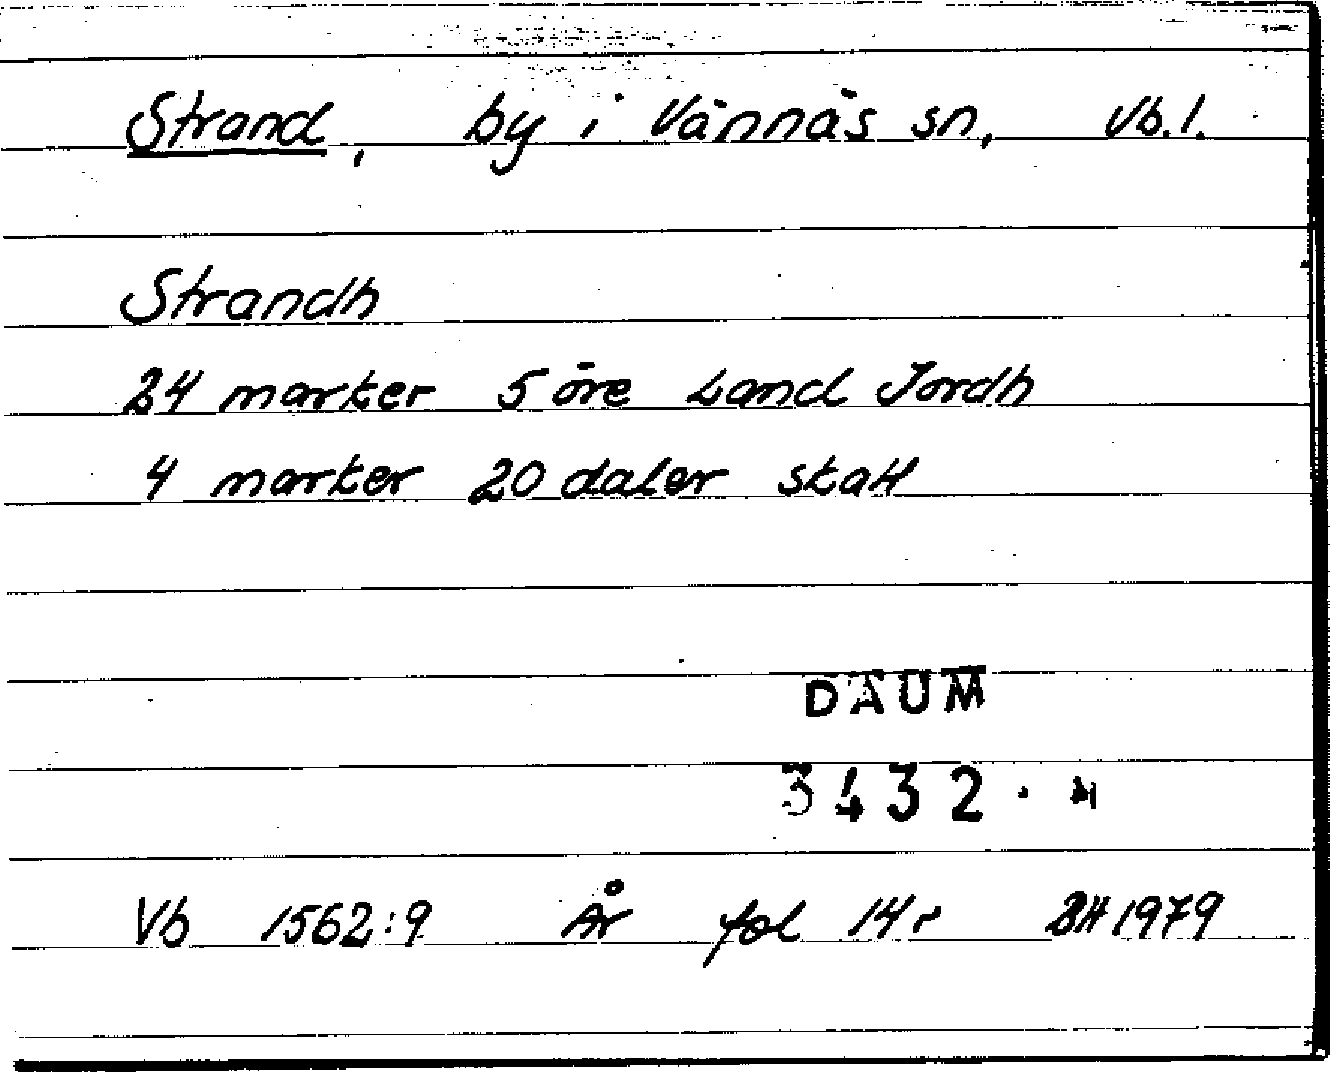 Strand, by i Vännäs sn, Vb.l.
Strandh
24 marker 5 öre Land Jordh
4 marker 20 daler skatt
DAUM
3432
Vb 1562:9 År fol 14r BH 1979